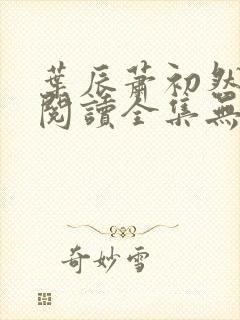 葉辰蕭初然
閱讀全集無
奇妙雪